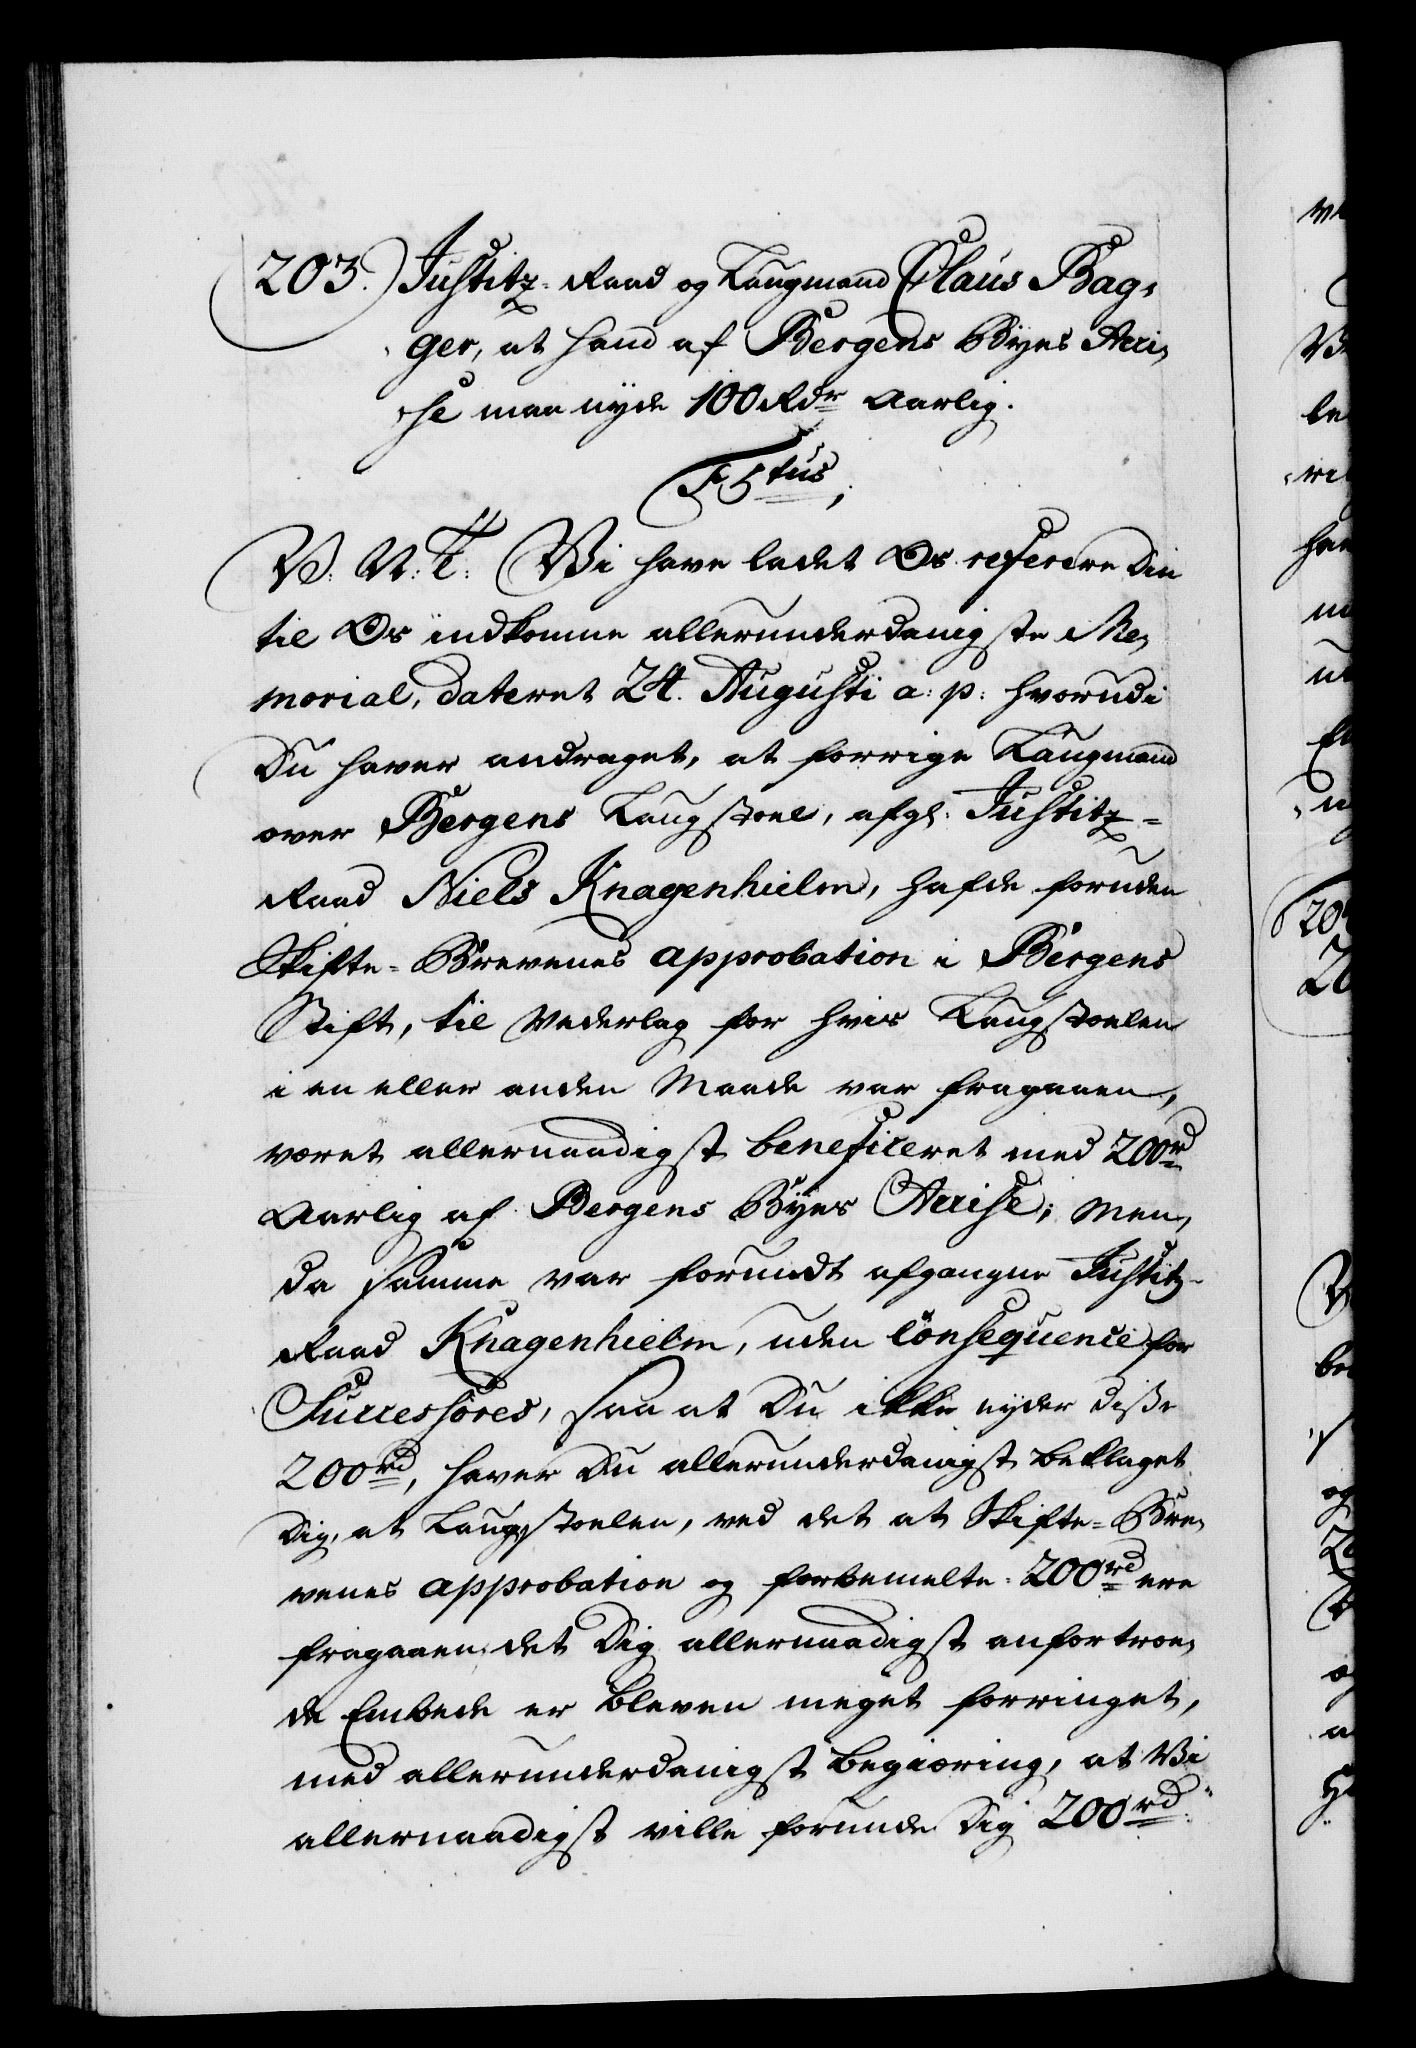 203. Justitz-Raad og Laugmand Claus Bag-
ger, at hand af Bergens Byes Acci-
se maa nyde 100 Rdr Aarlig.
F 5tus,
V. N. T. Wi have ladet Os referere Din
til Os indkomne allerunderdanigste Me-
morial, dateret 24. Augusti a: p: hvorudi
Du haver andraget, at forrige Laugmand
over Bergens Laugstoel, afg: Justitz-
Raad Niels Knagenhielm, hafde foruden
Skifte-Brevenes approbation i Bergens
Stift, til Vederlag for hvis Laugstoelen
i en eller anden Maade var fragaaen,
været allernaadigst beneficeret med 200rd
Aarlig af Bergens Byes Accise; Men,
da samme var forundt afgangne Justitz-
Raad Knagenhielm, uden Consequence for
Successores, saa at Du ikke nyder disse
200rd, haver Du allerunderdanigst beklaget
Dig, at Laugstoelen, ved det at Skifte-Bre-
venes approbation og forbemelte 200rd ere
fragaaen det Dig allernaadigst anfortroe-
de Embede er bleven meget forringet,
med allerunderdanigst begiæring, at Vi
allernaadigst ville forunde Dig 200rd